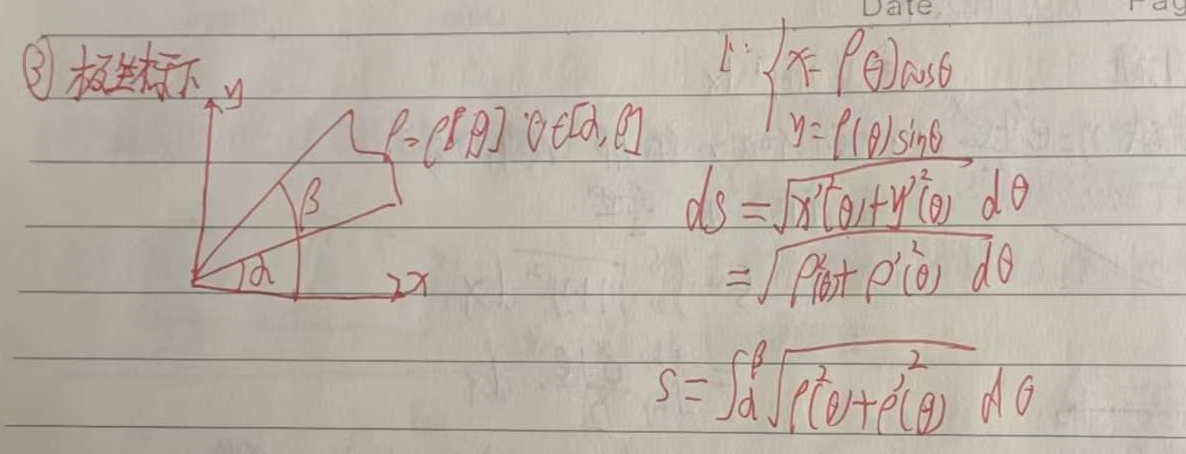 Date
Pag
③ 极坐标下
y
ρ=ρ[θ] θ∈[α,β]
β
α
x
L: { x=ρ(θ)cosθ
y=ρ(θ)sinθ
ds=√(x'²(θ)+y'²(θ)) dθ
=√(ρ²(θ)+ρ'²(θ)) dθ
S=∫_α^β √(ρ²(θ)+ρ'²(θ)) dθ